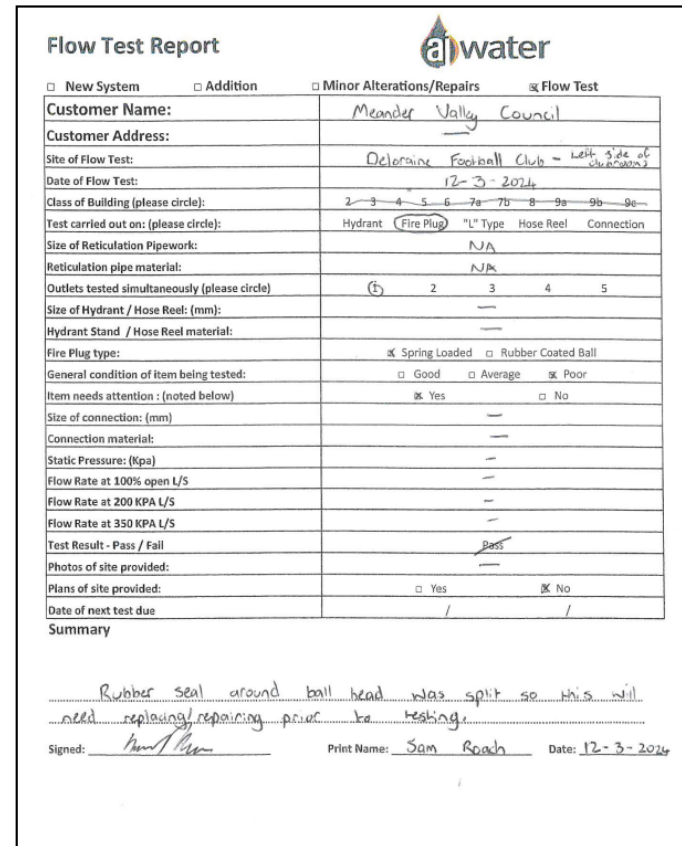 Flow Test Report
ai water
□ New System □ Addition □ Minor Alterations/Repairs ☒ Flow Test
Customer Name: Meander Valley Council
Customer Address: —
Site of Flow Test: Deloraine Football Club - Left side of clubrooms
Date of Flow Test: 12-3-2024
Class of Building (please circle): 2 3 4 5 6 7a 7b 8 9a 9b 9c
Test carried out on: (please circle): Hydrant Fire Plug "L" Type Hose Reel Connection
Size of Reticulation Pipework: NA
Reticulation pipe material: NA
Outlets tested simultaneously (please circle) 1 2 3 4 5
Size of Hydrant / Hose Reel: (mm): —
Hydrant Stand / Hose Reel material: —
Fire Plug type: ☒ Spring Loaded □ Rubber Coated Ball
General condition of item being tested: □ Good □ Average ☒ Poor
Item needs attention : (noted below) ☒ Yes □ No
Size of connection: (mm) —
Connection material: —
Static Pressure: (Kpa) —
Flow Rate at 100% open L/S —
Flow Rate at 200 KPA L/S —
Flow Rate at 350 KPA L/S —
Test Result - Pass / Fail Pass
Photos of site provided: —
Plans of site provided: □ Yes ☒ No
Date of next test due / /
Summary
Rubber seal around ball head was split so this will
need replacing/repairing prior to testing.
Signed: Print Name: Sam Roach Date: 12-3-2024